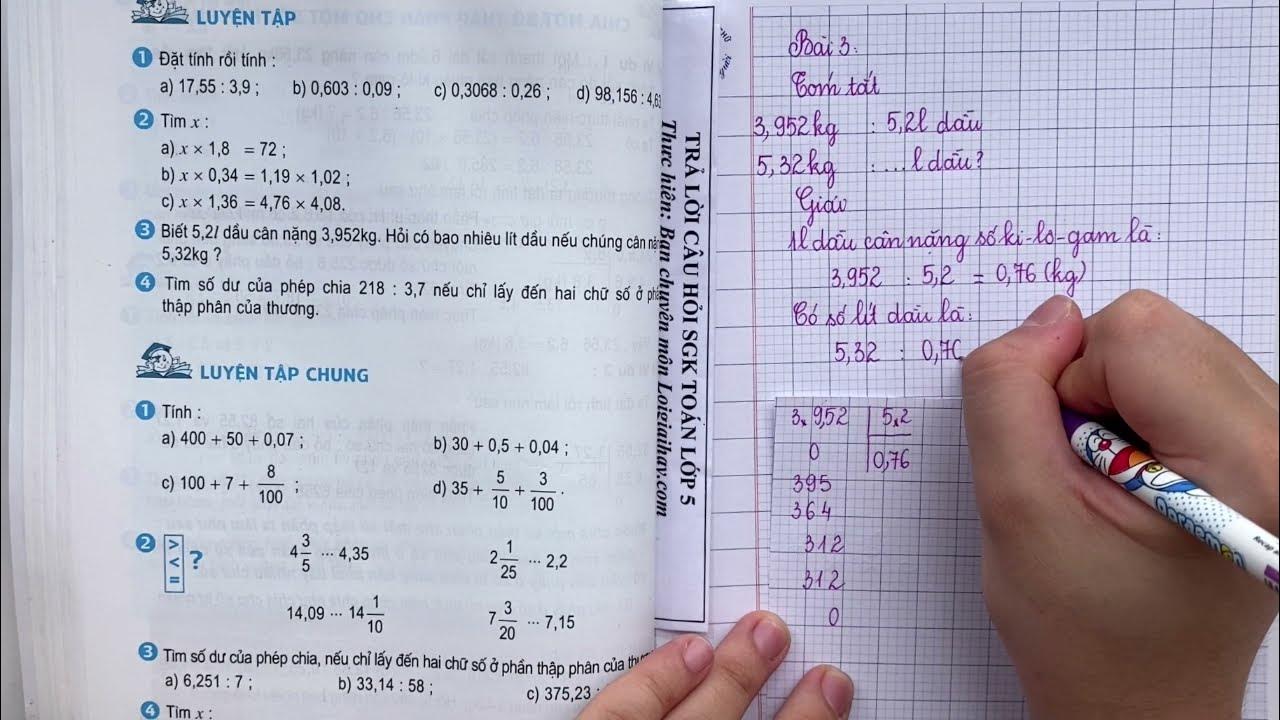 LUYỆN TẬP
1 Đặt tính rồi tính :
a) 17,55 : 3,9 ; b) 0,603 : 0,09 ; c) 0,3068 : 0,26 ; d) 98,156 : 4,63
2 Tìm x :
a) x × 1,8 = 72 ;
b) x × 0,34 = 1,19 × 1,02 ;
c) x × 1,36 = 4,76 × 4,08.
3 Biết 5,2l dầu cân nặng 3,952kg. Hỏi có bao nhiêu lít dầu nếu chúng cân
5,32kg ?
4 Tìm số dư của phép chia 218 : 3,7 nếu chỉ lấy đến hai chữ số ở
thập phân của thương.
LUYỆN TẬP CHUNG
1 Tính :
a) 400 + 50 + 0,07 ; b) 30 + 0,5 + 0,04 ;
c) 100 + 7 + 8/100 ; d) 35 + 5/10 + 3/100 .
2 > < = ? 4 3/5 ... 4,35 2 1/25 ... 2,2
14,09 ... 14 1/10 7 3/20 ... 7,15
3 Tìm số dư của phép chia, nếu chỉ lấy đến hai chữ số ở phần thập phân của
a) 6,251 : 7 ; b) 33,14 : 58 ; c) 375,23 :
4 Tìm x :
TRẢ LỜI CÂU HỎI SGK TOÁN LỚP 5
Thực hiện: Ban chuyên môn Loigiaihay.com
Bài 3:
Tóm tắt
3,952kg : 5,2l dầu
5,32kg : ...l dầu?
Giải
1l dầu cân nặng số ki-lô-gam là:
3,952 : 5,2 = 0,76 (kg)
Có số lít dầu là:
5,32 : 0,76
3,9,52 5,2
0 0,76
395
364
312
312
0